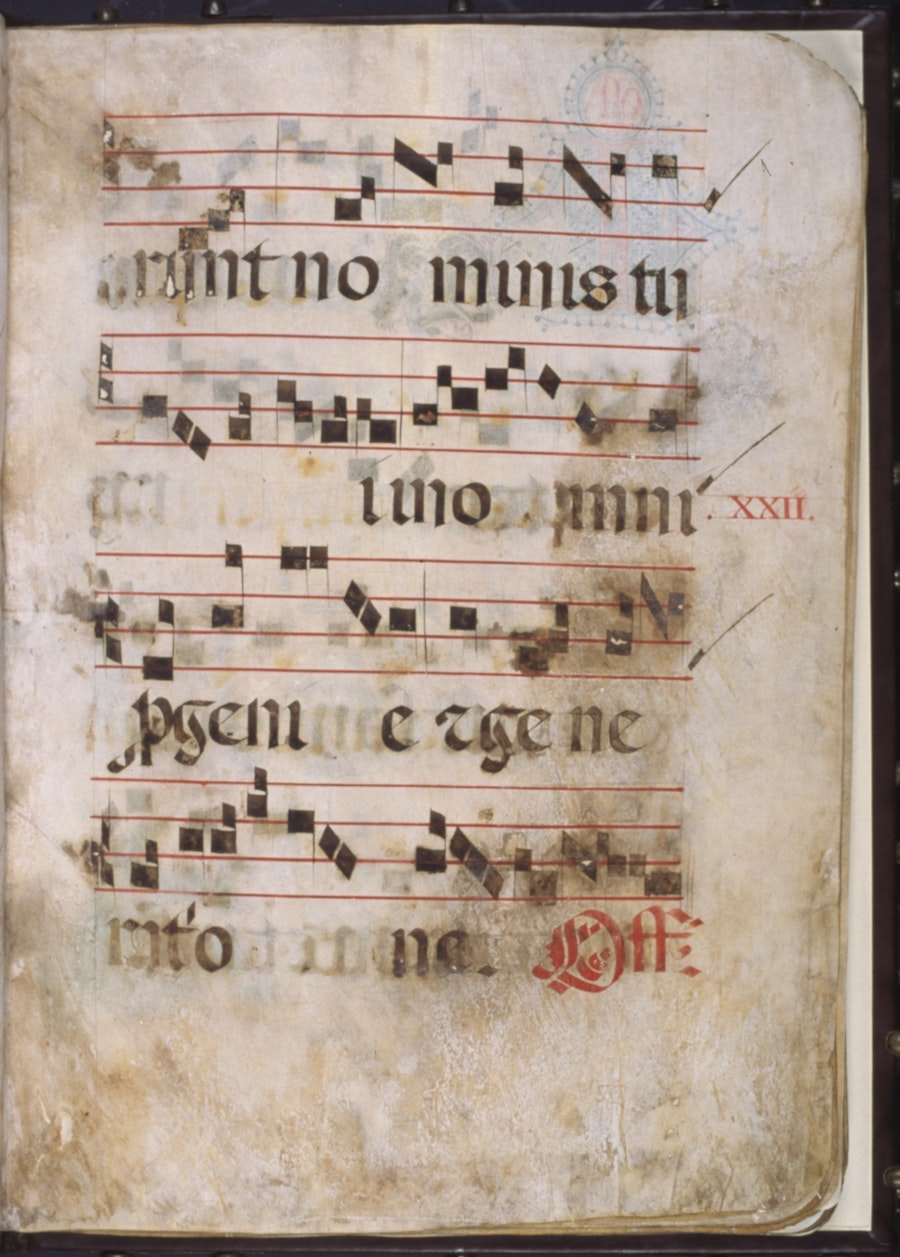 erunt no minis tu
i in o mni . XXII.
pgeni e ⁊ ge ne
rati o ne. Off.